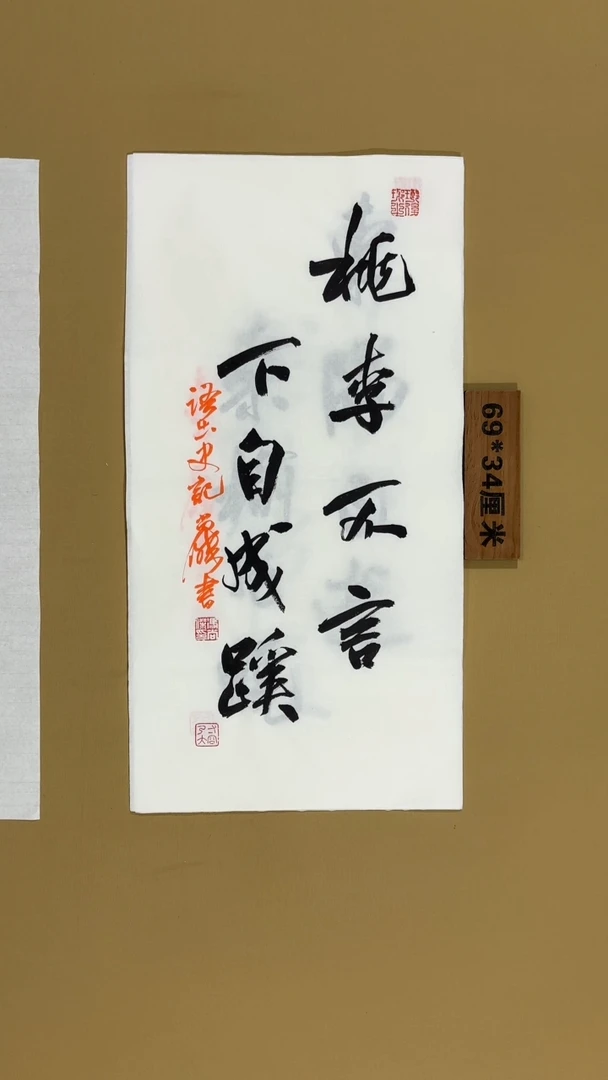 桃李不言
下自成蹊
语出史记
书
69*34厘米